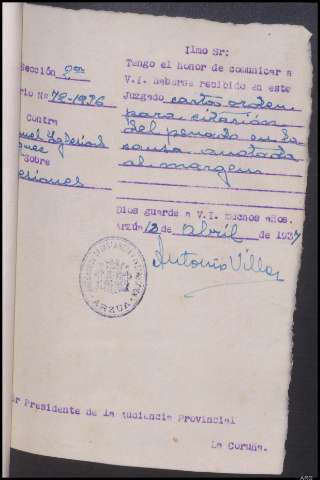 Ilmo Sr:
Tengo el honor de comunicar a
V.I. haberse recibido en este
Juzgado carta orden
para citación
del penado en la
causa anotada
al margen
Dios guarde a V.I. muchos años.
Arzúa 12 de abril de 1937
Antonio Villar
Sección 2ª
rio Nº 72-1936
Contra
uel Iglesias
Sobre
esiones
ARZUA
or Presidente de la Audiencia Provincial
La Coruña.